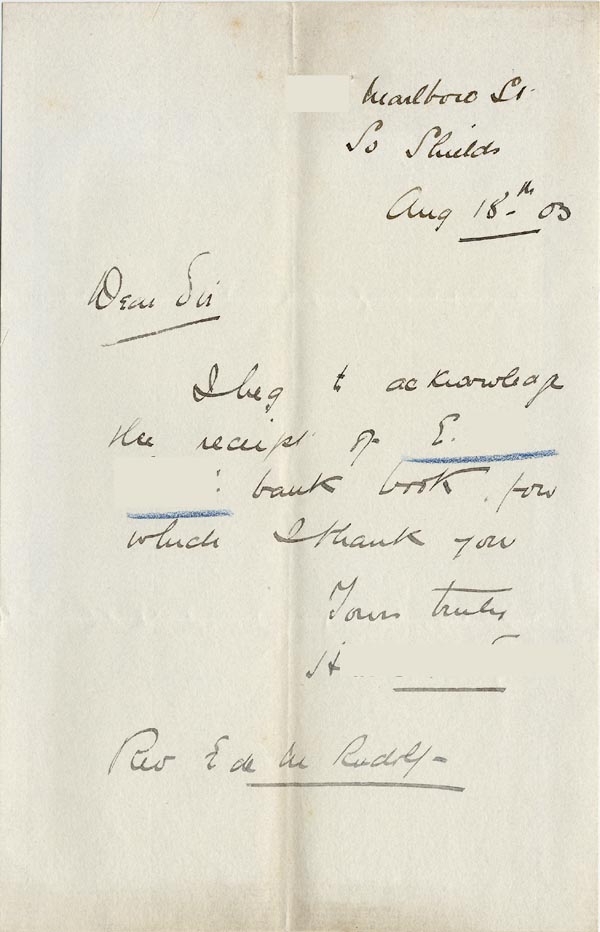 Marlboro St.
So Shields
Aug 18-th 03
Dear Sir
I beg to acknowledge
the receipt of E.
bank book for
which I thank you
Yours truly
H
Rev E de M Rudolf-